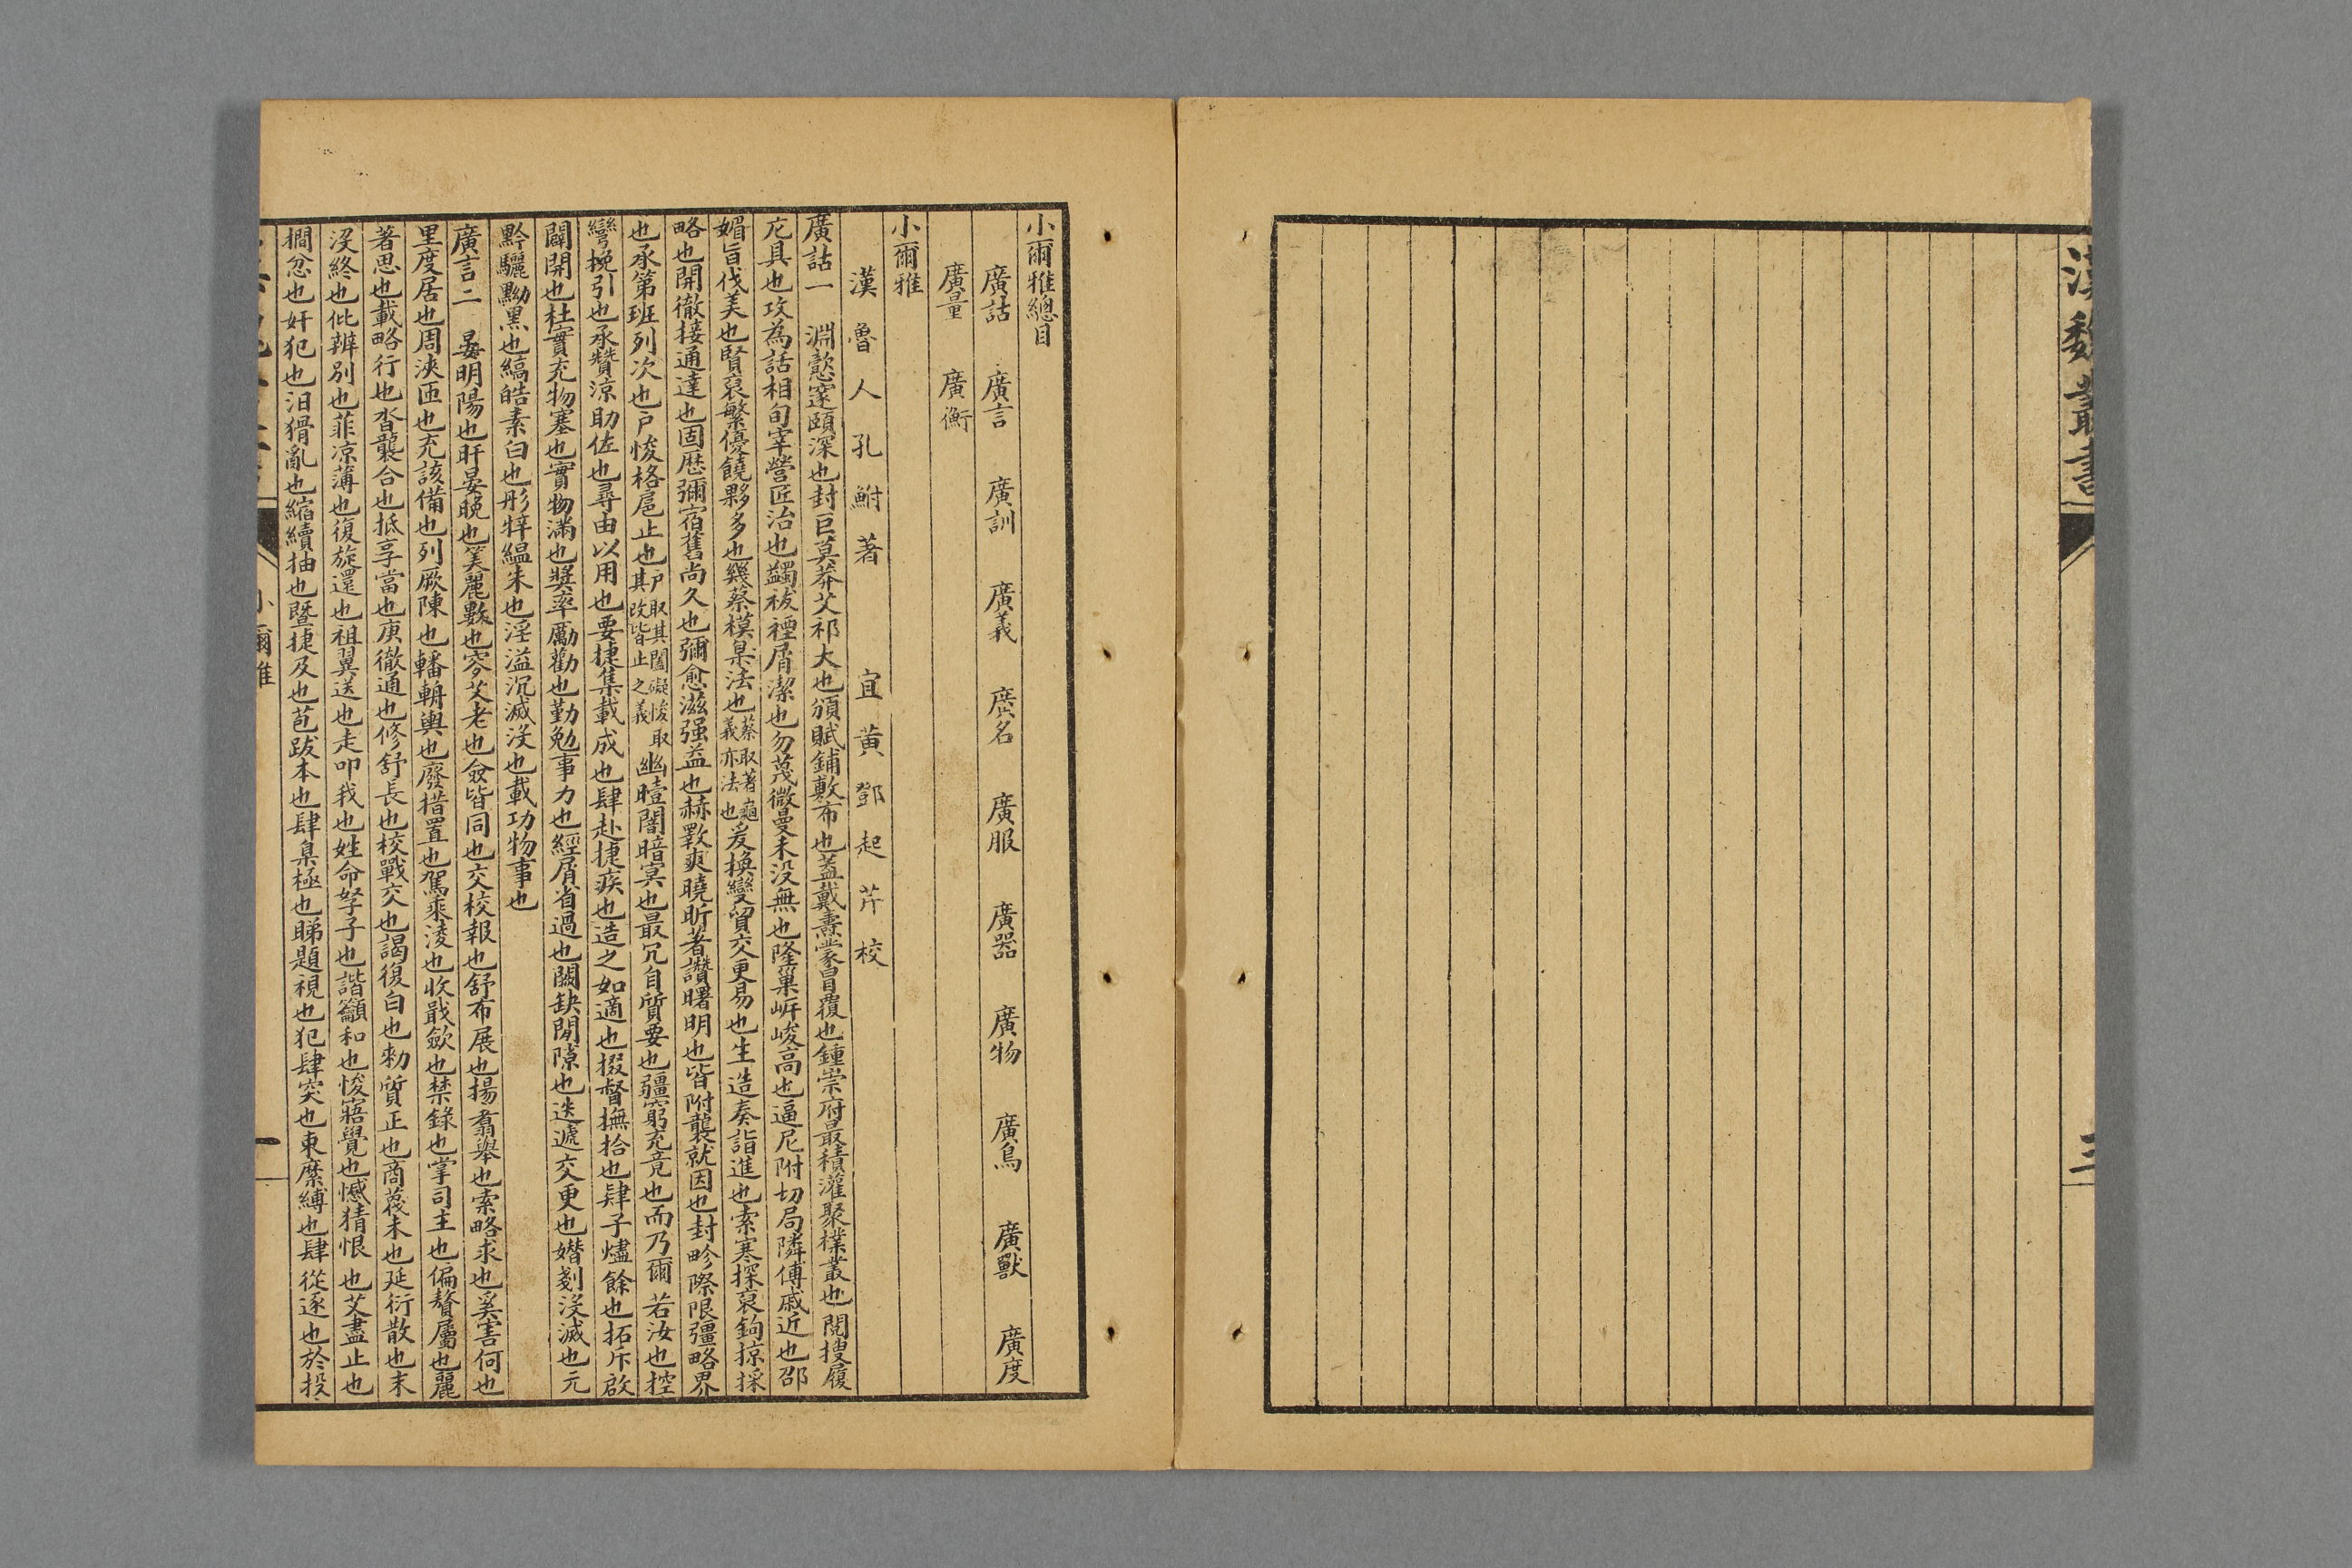 漢魏叢書
三
小爾雅總目
廣詁 廣言 廣訓 廣義 廣名 廣服 廣器 廣物 廣鳥 廣獸 廣度
廣量 廣衡
小爾雅
漢 魯人 孔鮒 著 宜黃 鄧起芹 校
廣詁一 淵懿邃賾深也封巨莫莽艾祁大也頒賦鋪敷布也蓋戴燾蒙冒覆也鍾崇府最積灌聚樸叢也閱搜履
庀具也攻為話相旬宰營匠治也蠲祓禋屑潔也勿蔑微曼末没無也隆巢岍峻高也逼尼附切局隣傅戚近也邵
媚旨伐美也賢裒繁優饒夥多也幾蔡模臬法也蔡取蓍龜義亦法也爰換變貿交更易也生造奏詣進也索寒探裒鉤掠採
略也開徹接通達也固歷彌宿舊尚久也彌愈滋强益也赫斁爽曉昕著讚曙明也皆附襲就因也封畛際限疆略界
也承第班列次也戸悛格扈止也戸取其闔礙悛取其改皆止之義幽曀闇暗冥也最冗自質要也疆窮充竟也而乃爾若汝也控
彎挽引也承贊涼助佐也尋由以用也要捷集載成也肆赴捷疾也造之如適也掇督撫拾也肄孑燼餘也拓斥啟
闢開也杜實充物塞也實物滿也獎率厲勸也勤勉事力也經屑省過也闕缺閒隙也迭遞交更也㜝剗没滅也元
黔驪黝黑也縞皓素白也彤㸪緼朱也淫溢沉滅没也載功物事也
廣言二 晏明陽也旰晏晚也筭麗數也㝥艾老也僉皆同也交校報也舒布展也揚翥舉也索略求也奚害何也
里度居也周浹匝也充該備也列厥陳也轓輈輿也廢措置也駕乘淩也收戢斂也禁錄也掌司主也偏贅屬也麗
著思也載略行也沓襲合也抵享當也庚徹通也修舒長也校戰交也謁復白也勑質正也商蔑末也延衍散也末
没終也仳辨別也菲涼薄也復旋還也祖翼送也走卬我也姓命孥子也諧籲和也悛寤覺也憾猜恨也艾盡止也
撊忿也奸犯也汨猾亂也縮續抽也曁捷及也苞跋本也肆臬極也睇題視也犯肆突也束縻縛也肆從逐也於投
小爾雅
一